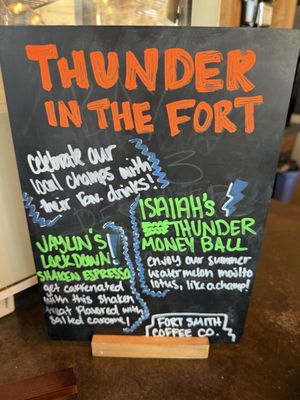 THUNDER
IN THE FORT
Celebrate our
local champs with
their fav drinks!
JAYLIN'S
LOCKDOWN
SHAKEN ESPRESSO
get caffeinated
with this shaken
treat flavored with
salted caramel!
ISAIAH'S
THUNDER
MONEY BALL
enjoy our summer
watermelon mojito
lotus, like a champ!
FORT SMITH
COFFEE CO.